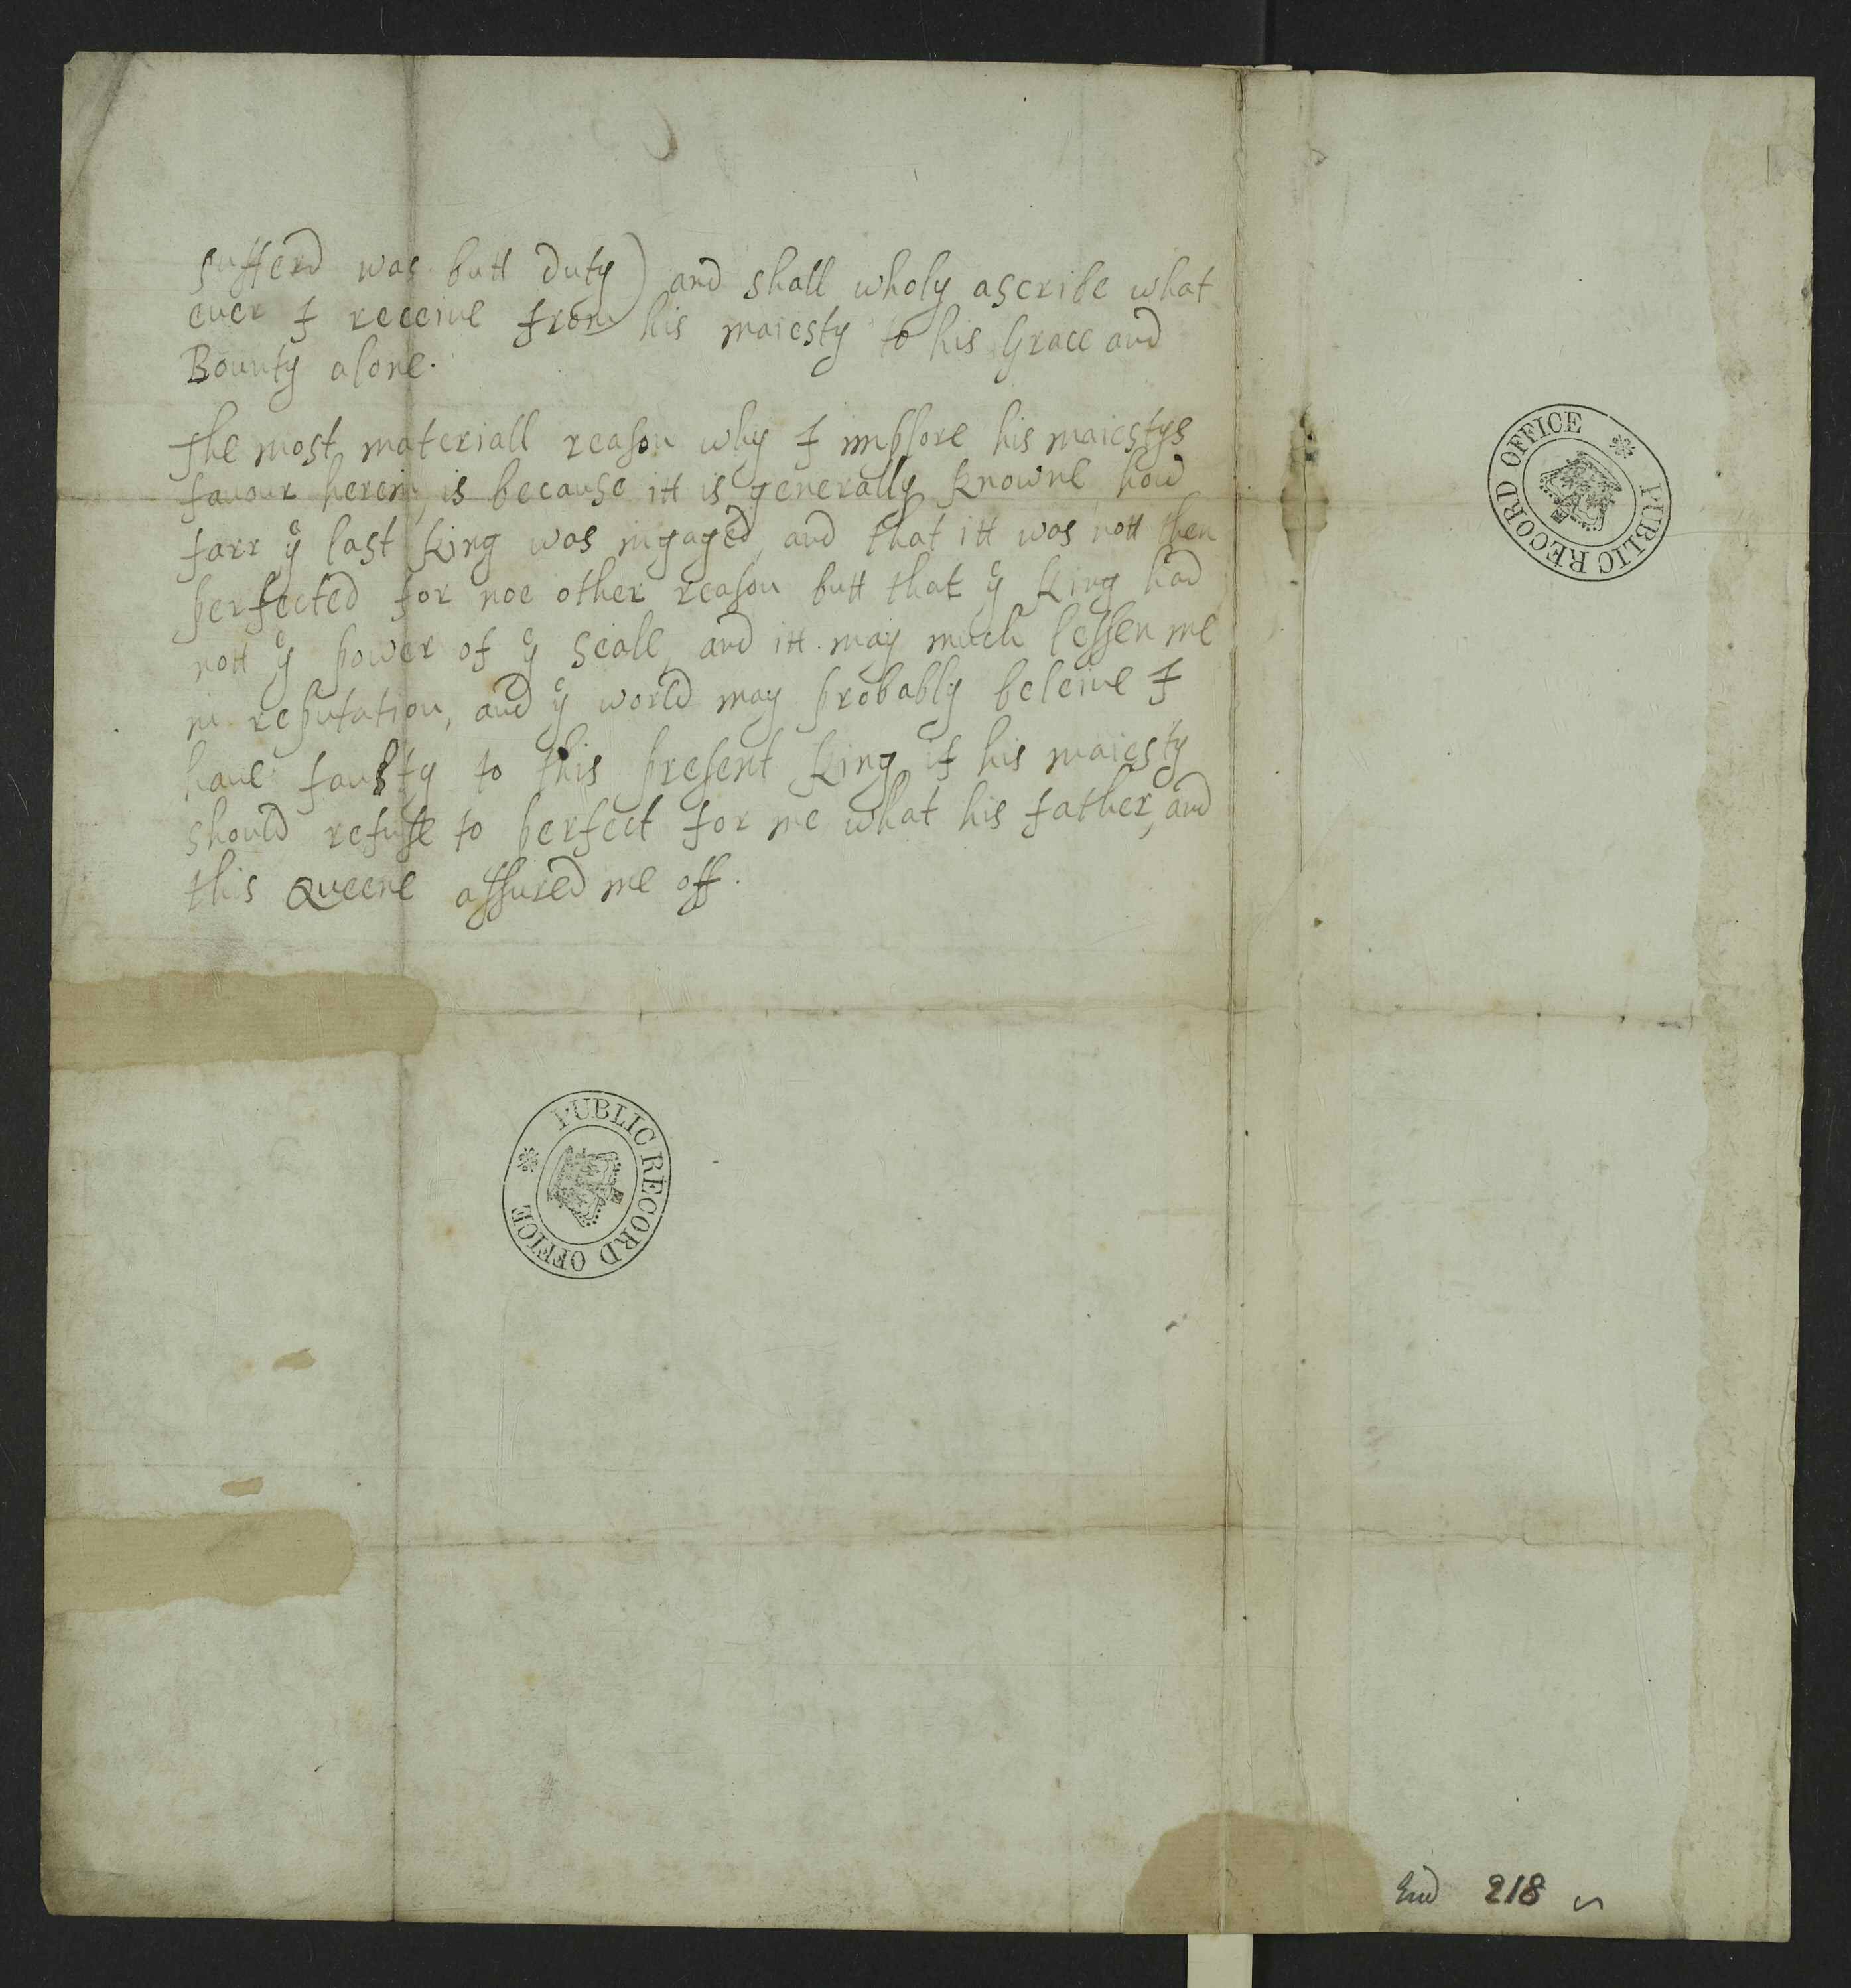 sufferd was butt duty) and shall wholy ascribe what
ever I receive from his maiesty to his Grace and
Bounty alone.
The most materiall reason why I implore his maiestys
favour herein, is because itt is generally knowne how
farr ye last king was ingaged, and that itt was nott then
perfected for noe other reason butt that ye king had
nott ye power of ye seale, and itt may much lessen me
in reputation, and ye world may probably beleive I
have faulty to this present king if his maiesty
should refuse to perfect for me what his father, and
this Queene assured me off.
PUBLIC RECORD OFFICE
PUBLIC RECORD OFFICE
End 218